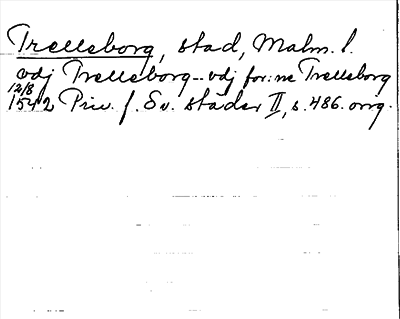 Trelleborg, stad, Malm. l.
vdj Trelleborg - vdj for:ne Trelleborg
12/8
1542 Priv. f. Sv. städer II, s. 486. orig.